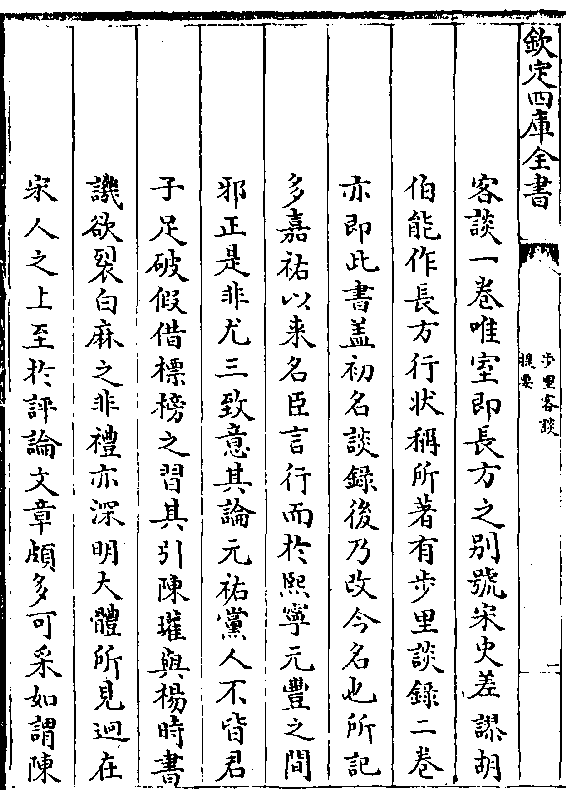 欽定四庫全書
步里客談
提要
客談一卷唯室即長方之别號宋史差謬胡
伯能作長方行狀稱所著有步里談録二卷
亦即此書盖初名談録後乃改今名也所記
多嘉祐以來名臣言行而於熙寧元豐之間
邪正是非尤三致意其論元祐黨人不皆君
子足破假借標榜之習其引陳瓘與楊時書
譏欲裂白麻之非禮亦深明大體所見迥在
宋人之上至於評論文章頗多可采如謂陳